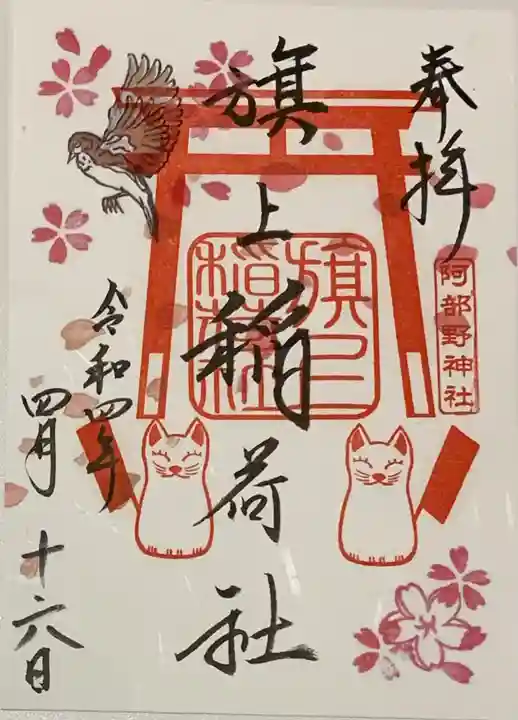 奉拝
阿部野神社
旗上稲荷社
旗上稲荷社
令和四年
四月十六日